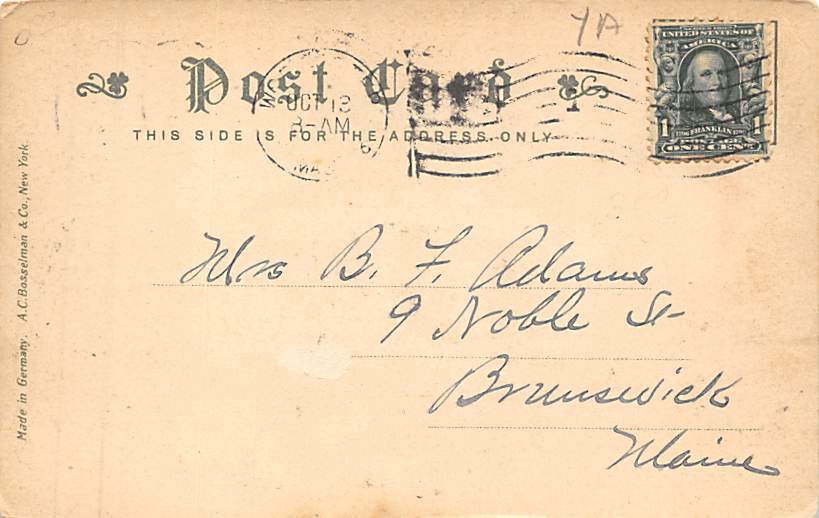 YA
Post Card
THIS SIDE IS FOR THE ADDRESS ONLY
OCT 13
8-AM
MAS
SERIES 1902
UNITED STATES OF
AMERICA
1 FRANKLIN 1
ONE CENT
Mrs B. F. Adams
9 Noble St
Brunswick
Maine
Made in Germany. A.C. Bosselman & Co., New York.